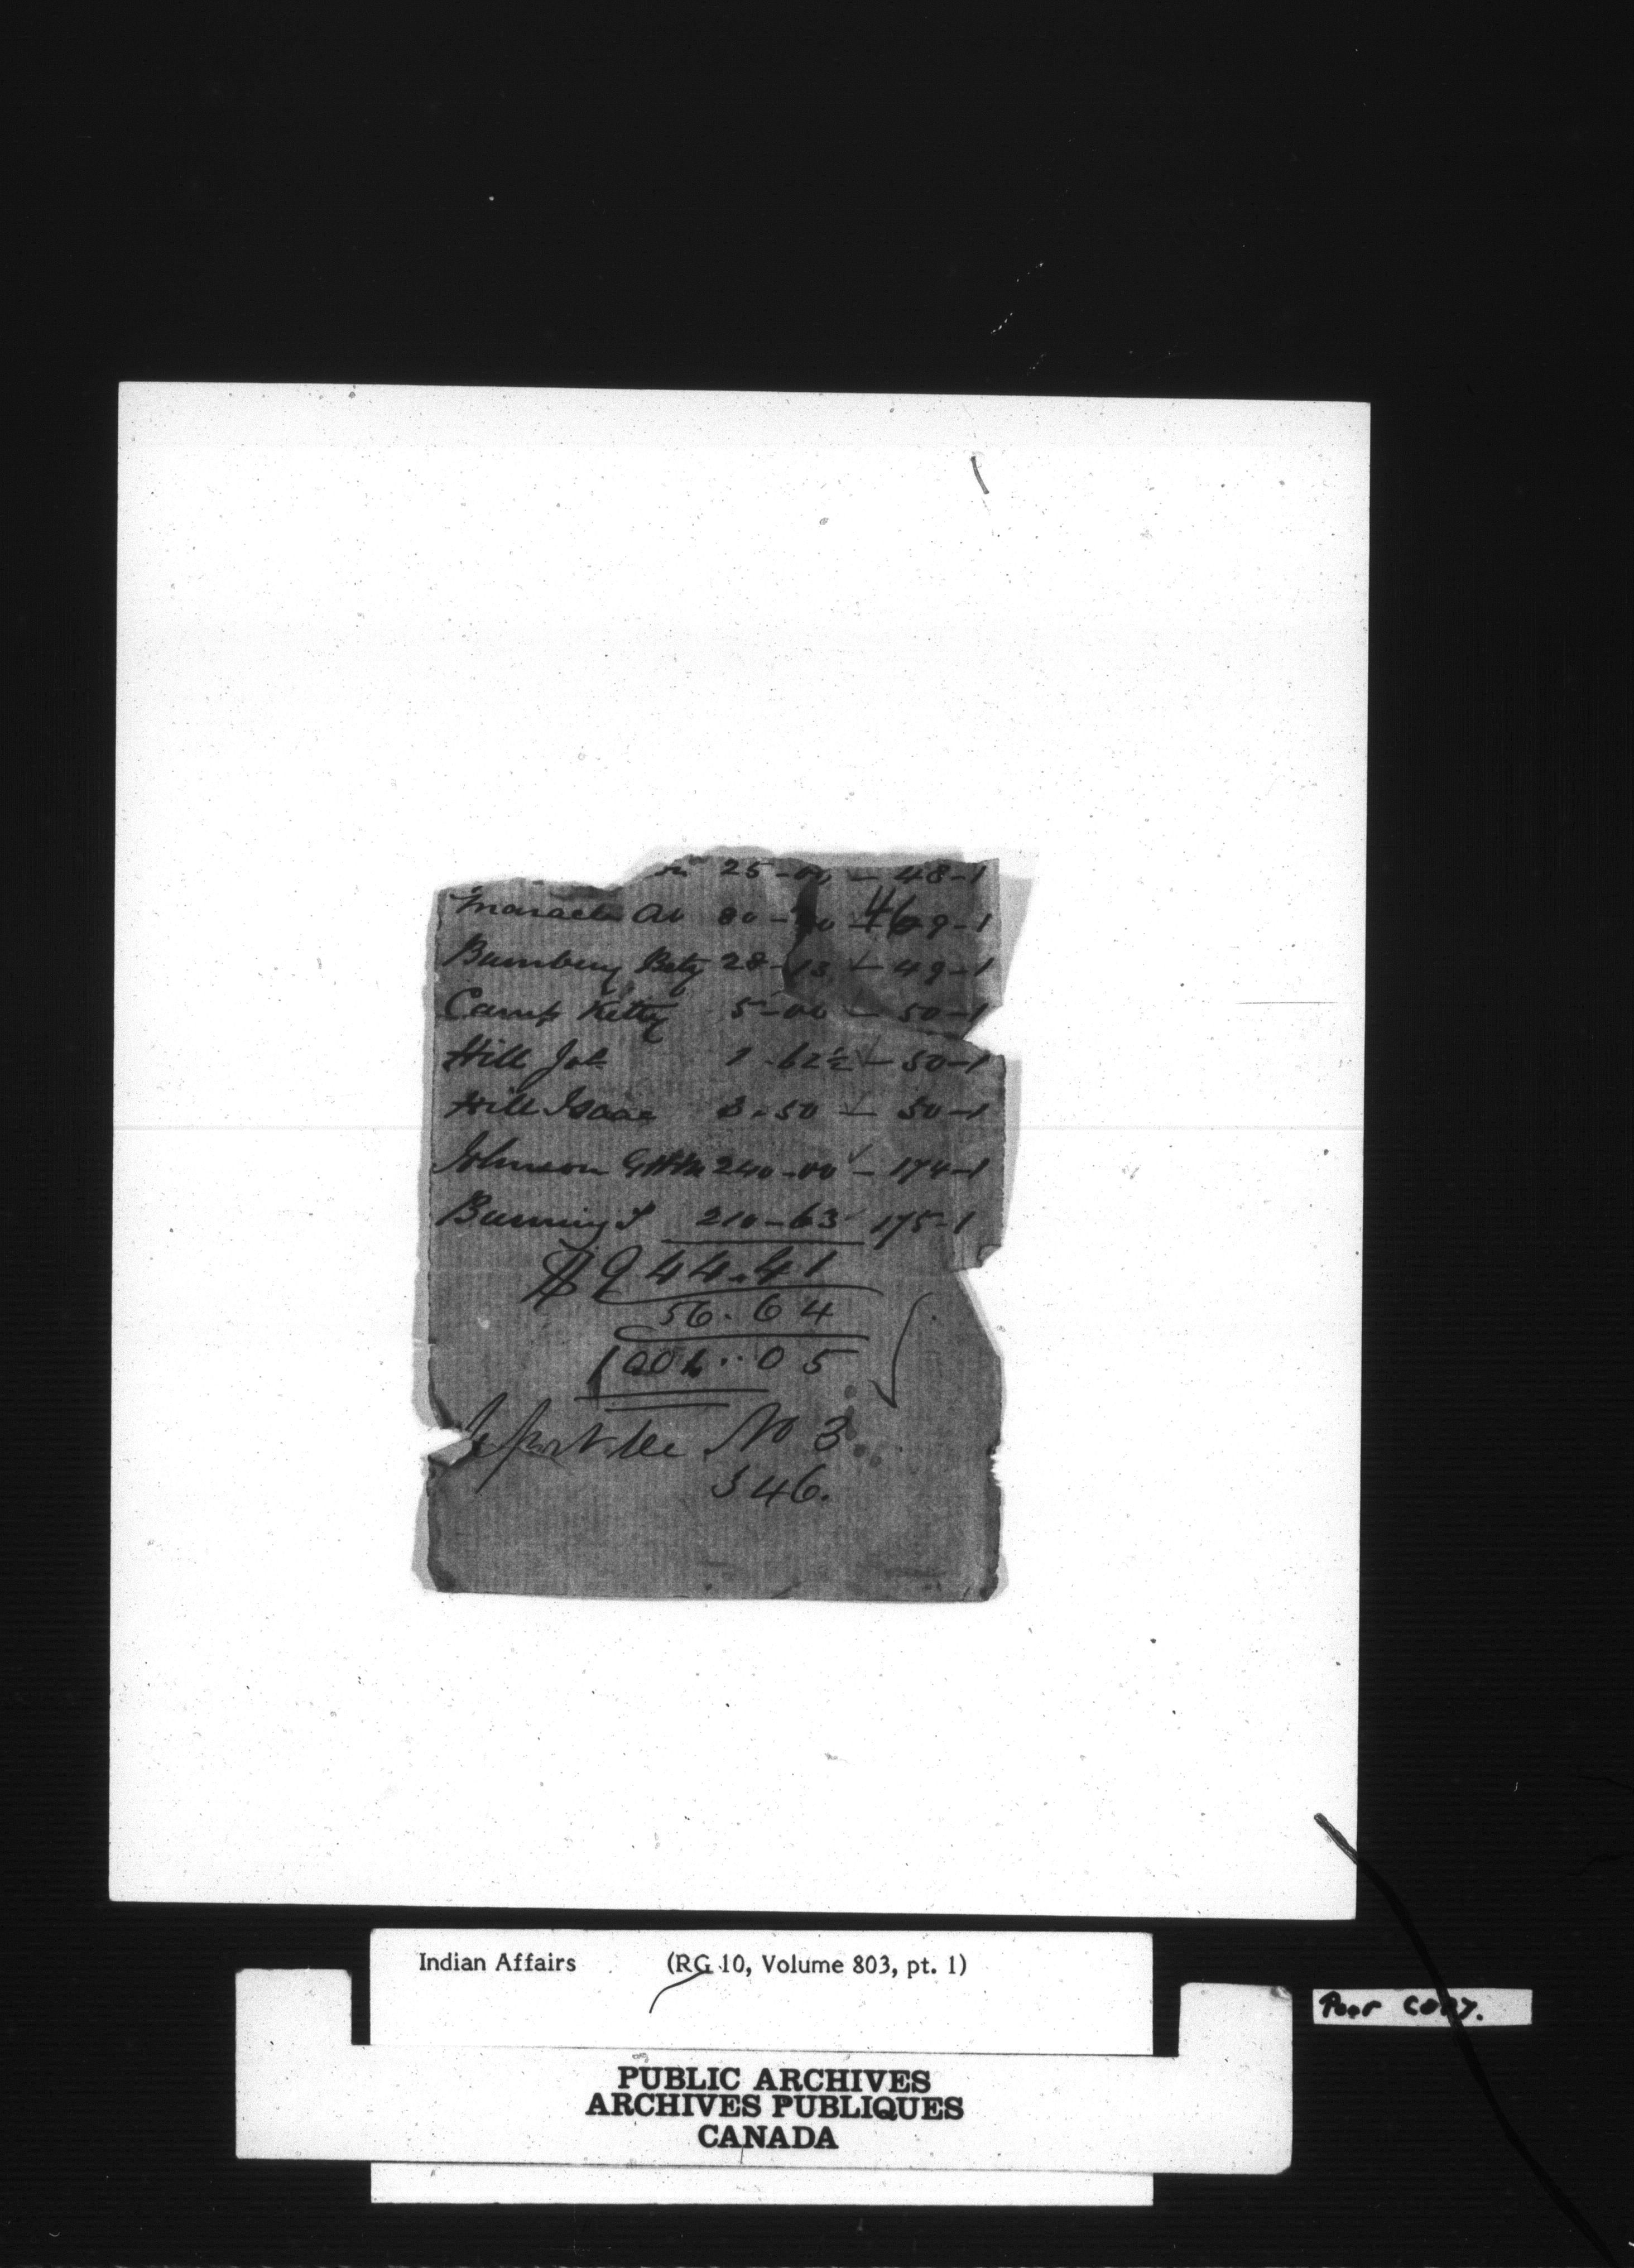 25-00 - 48-1
Maracle Ab 80-00 - 49-1
46
Bumbery Bety 28-13 - 49-1
Camp Kitty 5-00 - 50-1
Hill Joh 1-62½ - 50-1
Hill Isaac 3-50 - 50-1
Johnson GHM 240-00 - 174-1
Burning J 210-63 175-1
$944.41
56.64
1001..05
No 3
346.
Indian Affairs (RG 10, Volume 803, pt. 1)
Poor COPY.
PUBLIC ARCHIVES
ARCHIVES PUBLIQUES
CANADA